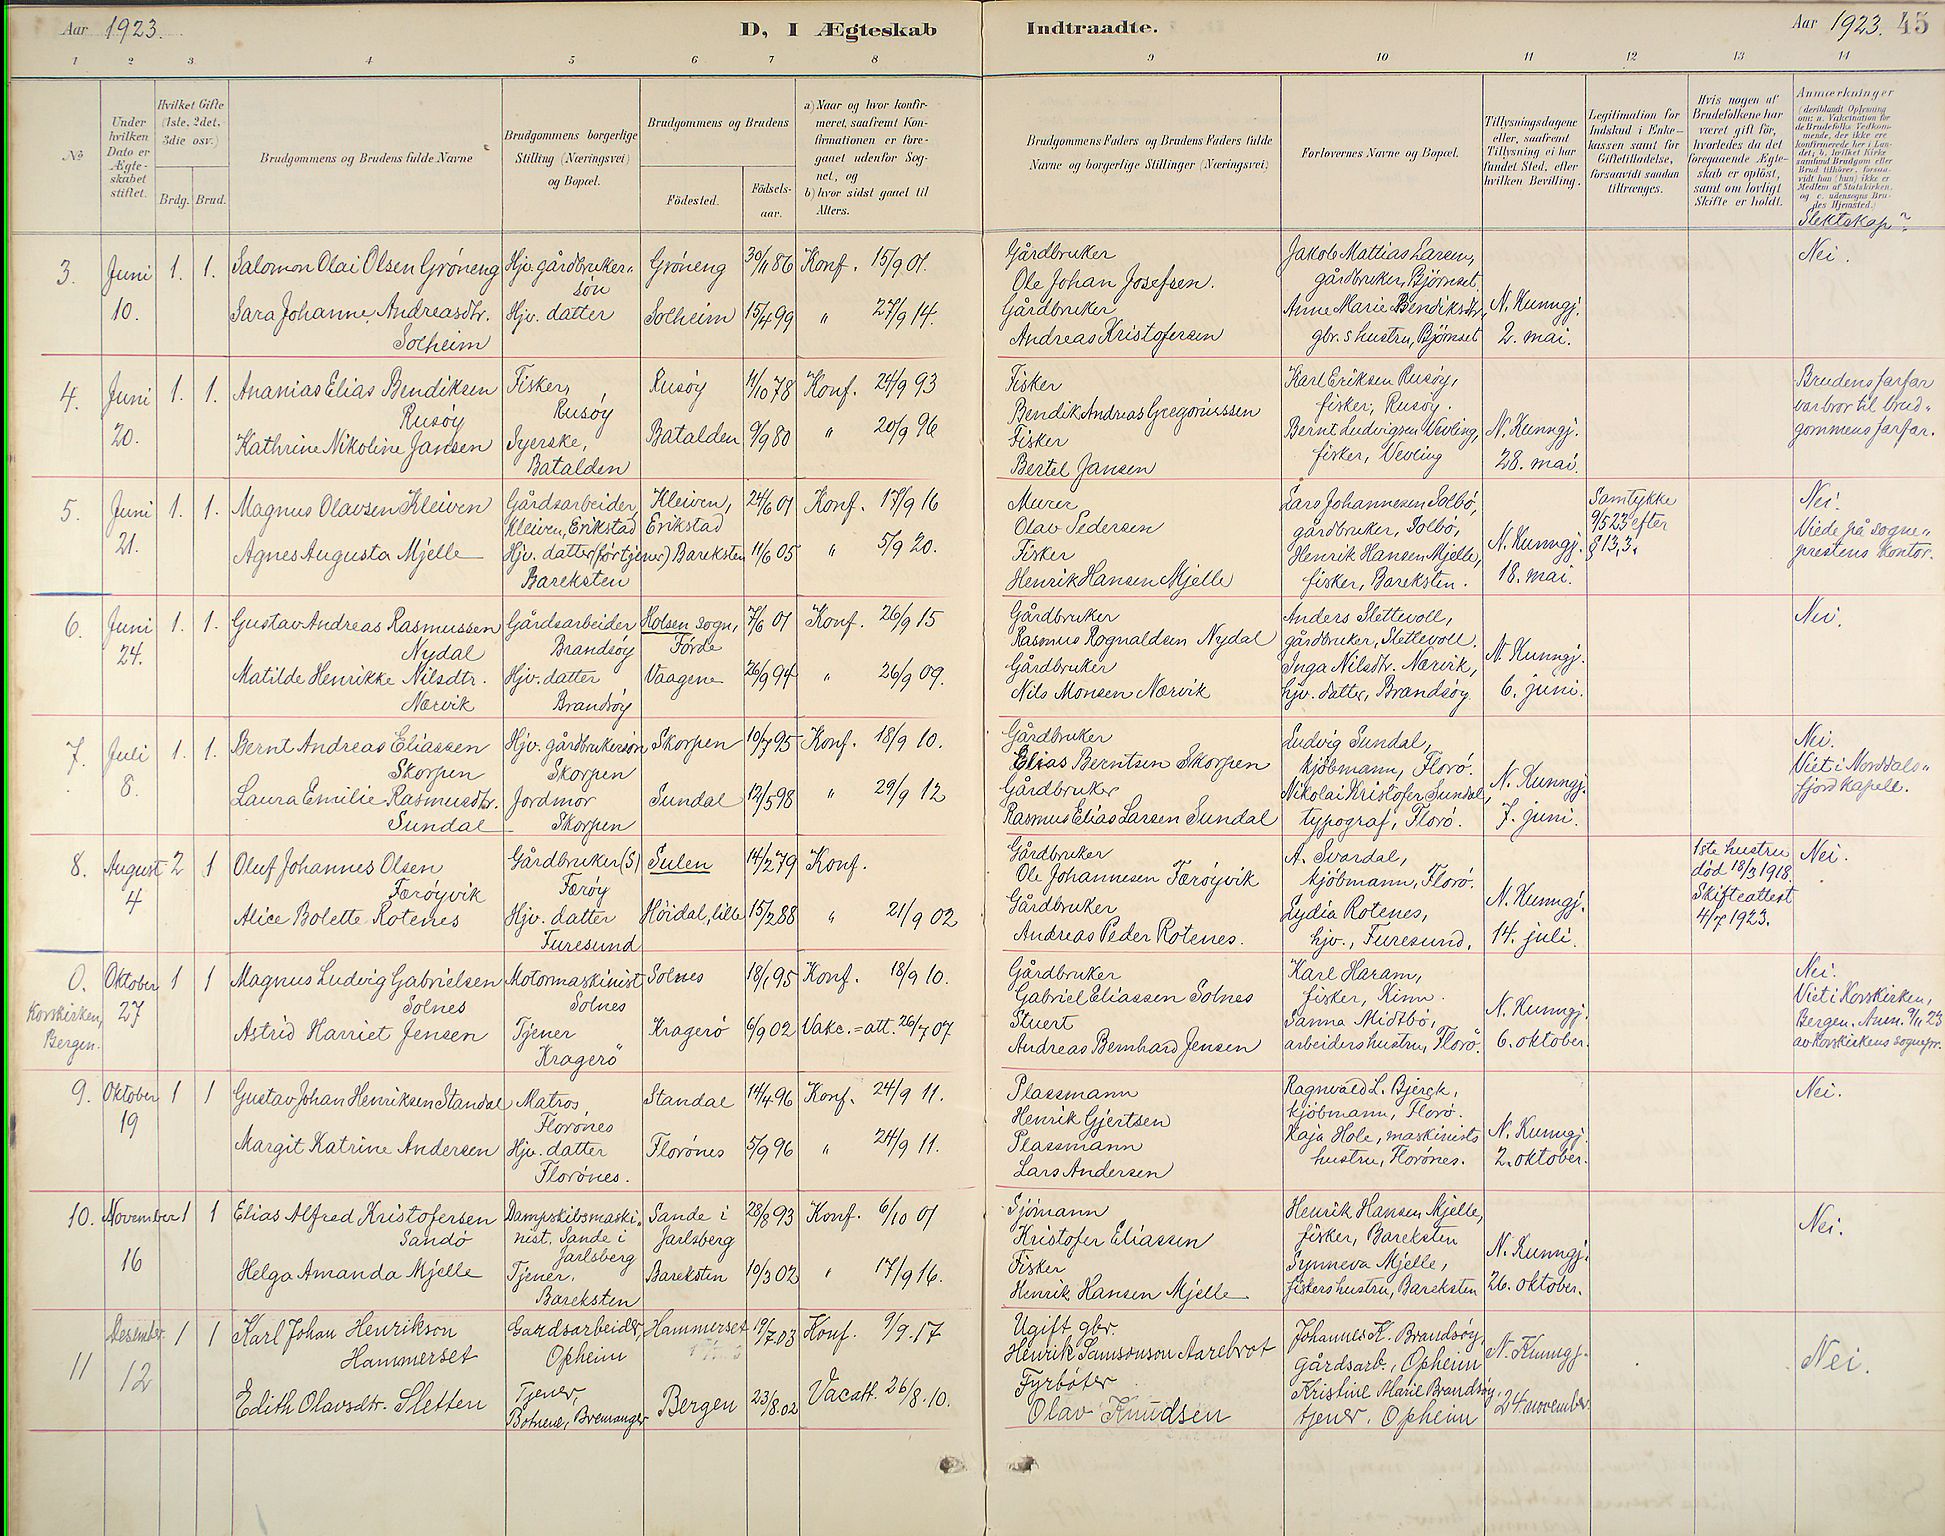 Aar 1923.
D, I Ægteskab Indtraadte.
Aar 1923. 45
1 2 3 4 5 6 7 8 9 10 11 12 13 14
No
Under hvilken Dato er Ægteskabet stiftet.
Hvilket Gifte (1ste, 2det, 3die osv.)
Brdg. Brud.
Brudgommens og Brudens fulde Navne
Brudgommens borgerlige Stilling (Næringsvei) og Bopæl.
Brudgommens og Brudens
Födested.
Födsels-aar.
a) Naar og hvor konfir-
meret, saafremt Kon-
firmationen er fore-
gaaet udenfor Sog-
net, og
b) hvor sidst gaaet til
Alters.
Brudgommens Faders og Brudens Faders fulde
Navne og borgerlige Stillinger (Næringsvei)
Forlovernes Navne og Bopæl.
Tillysningsdagene
eller, saafremt
Tillysning ei har
fundet Sted, efter
hvilken Bevilling.
Legitimation for
Indskud i Enke-
kassen samt for
Giftetilladelse,
forsaavidt saadan
tiltrænges.
Hvis nogen af
Brudefolkene har
været gift för,
hvorledes da det
foregaaende Ægte-
skab er oplöst,
samt om lovligt
Skifte er holdt.
Anmærkninger
(deriblandt Oplysning
om: a. Vakcination for
de Brudefolks Vedkom-
mende, der ikke ere
konfirmerede her i Lan-
det; b. hvilket Kirke
samfund Brudgom eller
Brud tilhörer, forsaa-
vidt han (hun) ikke er
Medlem af Statskirken,
og c. udensogns Bru-
des Hjemsted.)
Slektskap?
3. Juni 10. 1. 1.
Salomon Olai Olsen Gröneng Hjv. gårdbruker-sön Gröneng 30/11 86 Konf. 15/9 01.
Sara Johanne Andreasdtr. Solheim Hjv. datter Solheim 15/4 99 " 27/9 14.
Gårdbruker
Ole Johan Josefsen.
Gårdbruker
Andreas Kristofersen
Jakob Mattias Larsen,
gårdbruker, Björnset.
Anne Marie Bendiksdtr,
gbr.s hustru, Björnset
N. Kunngj.
2. mai.
Nei.
4. Juni 20. 1. 1.
Ananias Elias Bendiksen Rusöy Fisker, Rusöy Rusöy 11/10 78 Konf. 24/9 93
Kathrine Nikoline Jansen Syerske, Batalden Batalden 9/9 80 " 20/9 96
Fisker
Bendik Andreas Gregoriussen
Fisker
Bertel Jansen
Karl Eriksen Rusöy,
fisker, Rusöy.
Bernt Ludvigsen Vevling,
fisker, Vevling
N. Kunngj.
28. mai.
Brudens farfar
var bror til brud-
gommens farfar.
5. Juni 21. 1. 1.
Magnus Olavsen Kleiven Gårdsarbeider, Kleiven, Erikstad Kleiven, Erikstad 24/6 01 Konf. 17/9 16
Agnes Augusta Mjelle Hjv. datter (för tjener) Bareksten Bareksten 11/6 05 " 5/9 20.
Murer
Olav Pedersen
Fisker
Henrik Hansen Mjelle
Lars Johannesen Solbö,
gårdbruker, Solbö,
Henrik Hansen Mjelle,
fisker, Bareksten.
N. Kunngj.
18. mai.
Samtykke
9/5 23 efter
§ 13,3.
Nei.
Viede på sogne-
prestens kontor.
6. Juni 24. 1. 1.
Gustav Andreas Rasmussen Nydal Gårdsarbeider Brandsöy Holsen sogn, Förde 7/6 01 Konf. 26/9 15
Matilde Henrikke Nilsdtr. Nærvik Hjv. datter Brandsöy Vaagene 26/9 94 " 26/9 09.
Gårdbruker
Rasmus Rognaldsen Nydal
Gårdbruker
Nils Monsen Nærvik
Anders Slettevoll,
gårdbruker, Slettevoll.
Inga Nilsdtr. Nærvik,
hjv. datter, Brandsöy
N. Kunngj.
6. juni.
Nei.
7. Juli 8. 1. 1.
Bernt Andreas Eliassen Skorpen Hjv. gårdbrukersön Skorpen Skorpen 10/7 95 Konf. 18/9 10.
Laura Emilie Rasmusdtr. Sundal Jordmor Skorpen Sundal 12/5 98 " 29/9 12
Gårdbruker
Elias Berntsen Skorpen
Gårdbruker
Rasmus Elias Larsen Sundal
Ludvig Sundal,
kjöbmann, Florö.
Nikolai Kristofer Sundal,
typograf, Florö.
N. Kunngj.
7. juni.
Nei.
Viet i Norddals-
fjord kapell.
8. August 4 2 1
Oluf Johannes Olsen Færöyvik Gårdbruker (S) Færöy Sulen 14/2 79 Konf.
Alice Bolette Rotenes Hjv. datter Furesund Höidal, lille 15/2 88 " 21/9 02
Gårdbruker
Ole Johannesen Færöyvik
Gårdbruker
Andreas Peder Rotenes.
A. Svardal,
kjöbmann, Florö.
Lydia Rotenes,
hjv., Furesund,
N. Kunngj.
14. juli.
1ste hustru
död 18/3 1918.
Skifteattest
4/7 1923.
Nei.
0. Korskirken, Bergen. Oktober 27 1 1
Magnus Ludvig Gabrielsen Solnes Motormaskinist Solnes Solnes 18/1 95 Konf. 18/9 10.
Astrid Harriet Jensen Tjener Kragerö Kragerö 6/9 02 Vakc.=att. 26/7 07
Gårdbruker
Gabriel Eliassen Solnes
Stuert
Andreas Bernhard Jensen
Karl Haram,
fisker, Kinn.
Sanna Midtbö,
arbeiders hustru, Florö.
N. Kunngj.
6. oktober.
Nei.
Viet i Korskirken,
Bergen. Anm. 9/11 23
av Korskirkens sognepr.
9. Oktober 19 1 1
Gustav Johan Henriksen Standal Matros, Florönes Standal 14/4 96 Konf. 24/9 11.
Margit Katrine Andersen Hjv. datter Florönes. Florönes 5/9 96 " 24/9 11.
Plassmann
Henrik Gjertsen
Plassmann
Lars Andersen
Ragnvald L. Bjerck,
kjöbmann, Florö.
Kaja Hole, maskinists
hustru, Florönes.
N. Kunngj.
2. oktober.
Nei.
10. November 16 1 1
Elias Alfred Kristofersen Sandö Dampskibsmaski-nist, Sande i Jarlsberg Sande i Jarlsberg 28/8 93 Konf. 6/10 07
Helga Amanda Mjelle Tjener, Bareksten Bareksten 10/3 02 " 17/9 16.
Sjömann
Kristofer Eliassen
Fisker
Henrik Hansen Mjelle
Henrik Hansen Mjelle,
fisker, Bareksten
Synneva Mjelle,
fiskers hustru, Bareksten
N. Kunngj.
26. oktober.
Nei.
11 Desember 12 1 1
Karl Johan Henrikson Hammerset Gardsarbeider, Opheim Hammerset 19/7 03 Konf. 9/9.17
Edith Olavsdtr. Sletten Tjener, Botnene, Bremanger Bergen 23/8.02 Vacatt. 26/8.10.
Ugift gbr.
Henrik Samsonson Aarebrot
Fyrböter
Olav Knudsen
Johannes K. Brandsöy,
Gårdsarb., Opheim
Kristine Marie Brandsöy,
tjener, Opheim
N. Kunngj.
24. november.
Nei.